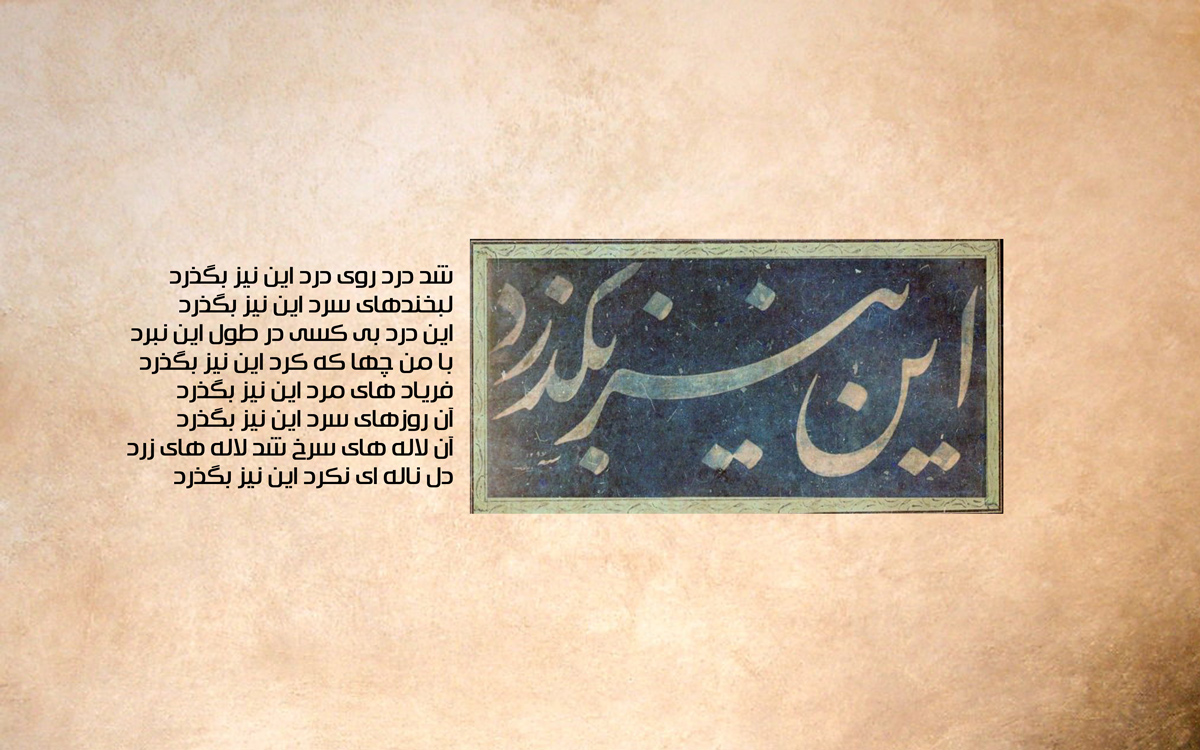 این نیز بگذرد
شد درد روی درد این نیز بگذرد
لبخندهای سرد این نیز بگذرد
این درد بی کسی در طول این نبرد
با من چها که کرد این نیز بگذرد
فریاد های مرد این نیز بگذرد
آن روزهای سرد این نیز بگذرد
آن لاله های سرخ شد لاله های زرد
دل ناله ای نکرد این نیز بگذرد